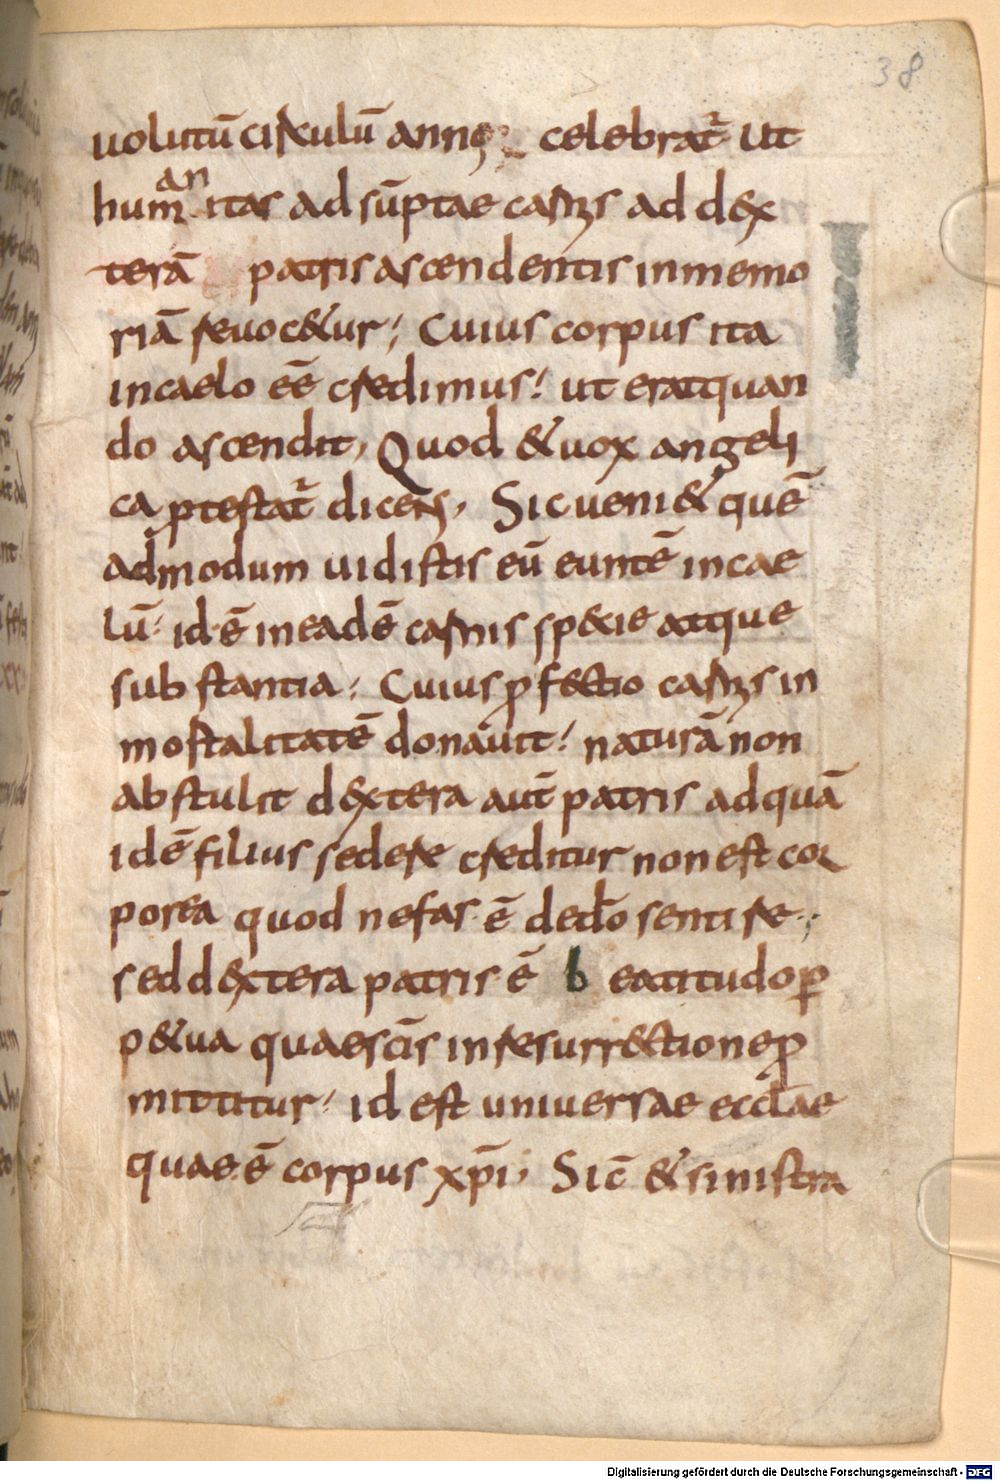 38
uolutū cirkulū annoꝝ celebrat̄ ut
humanitas ad sūptae carnis ad dex
terā patris ascendentis in memo
riā reuoc&ur; Cuius corpus ita
in caelo eē credimus! ut erat quan
do ascendit, Quod & uox angeli
ca ptestat̄ dicens, Sic ueni& quē
admodum uidistis eū euntē in cae
lū· id·ē in eadē carnis sp&ie atque
substantia; Cuius ꝓf&ctio carnis in
mortalitatē donauit! naturā non
abstulit d&xtera aut̄ patris ad quā
idē filius sedere creditur non est cor
porea quod nefas·ē de dō sentire·;
sed d&xtera patris·ē beatitudo ꝑ
p&ua quae sc̄is in resurr&ctione ꝓ
mittitur! id est uniuersae eccl̄ae
quae ē corpus xp̄i, Sic̄ & sinistra
Digitalisierung gefördert durch die Deutsche Forschungsgemeinschaft - DFG